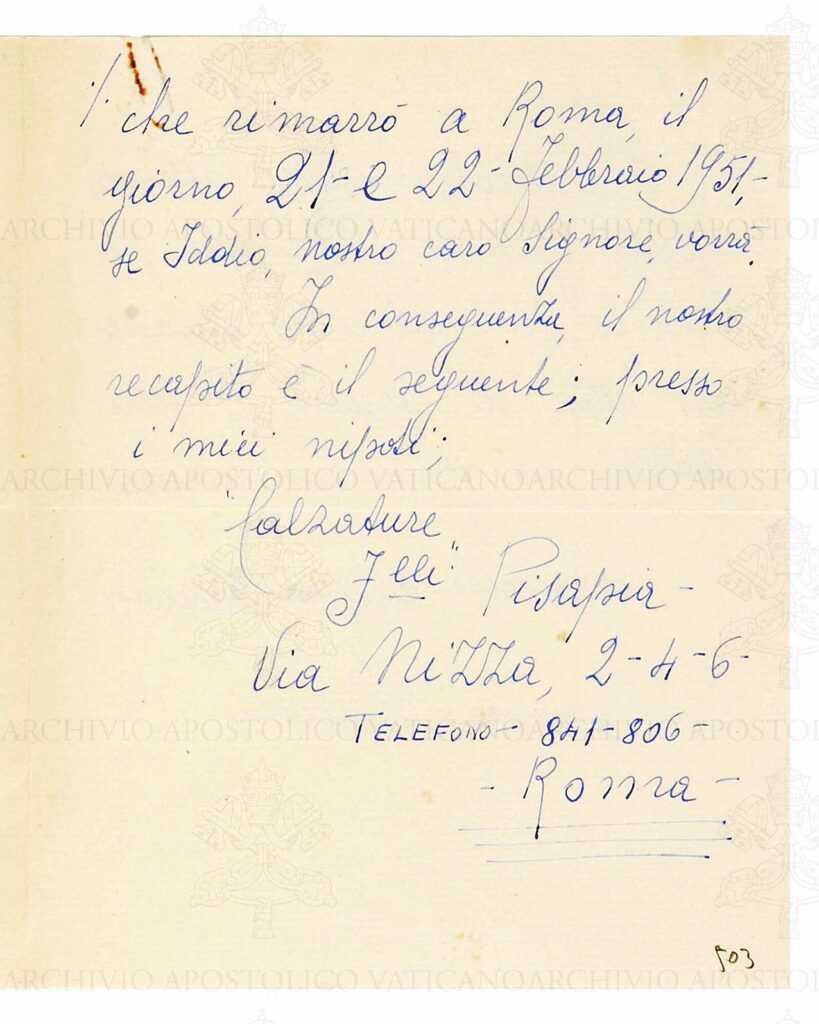 ./. che rimarrò a Roma, il
giorno, 21- e 22- Febbraio, 1951,-
se Iddio, nostro caro Signore, vorrà.
In conseguenza, il nostro
recapito è il seguente; presso
i miei nipoti;
"Calzature
F.lli" Pisapia -
Via NiZZa, 2-4-6-
TELEFONO- 841-806-
- Roma -
503
ARCHIVIO APOSTOLICO VATICANO